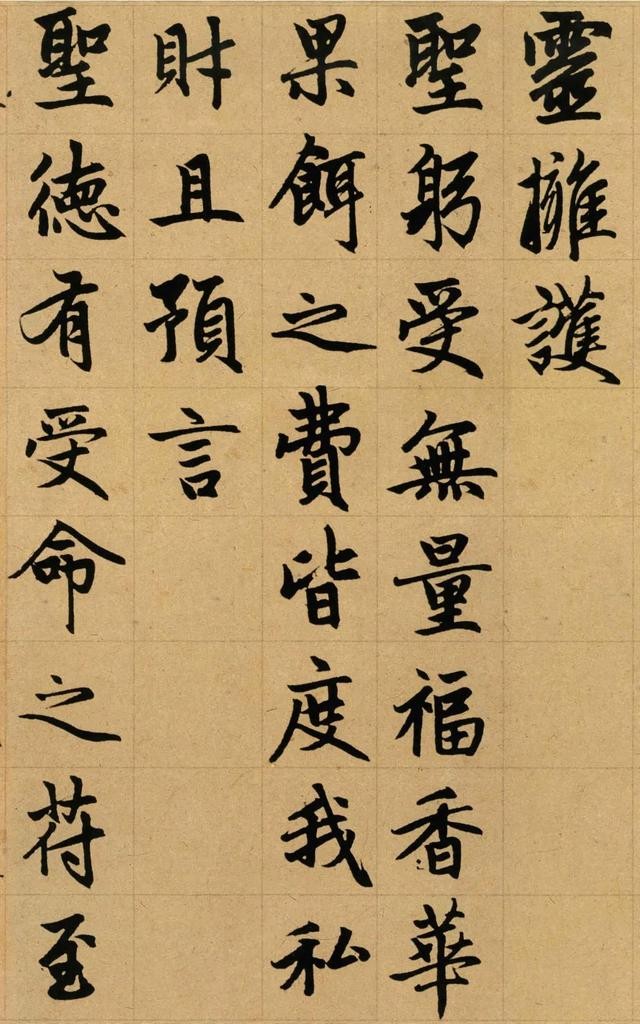 靈擁護
聖躬受無量福香華
果餌之費皆度我私
財且預言
聖德有受命之符至